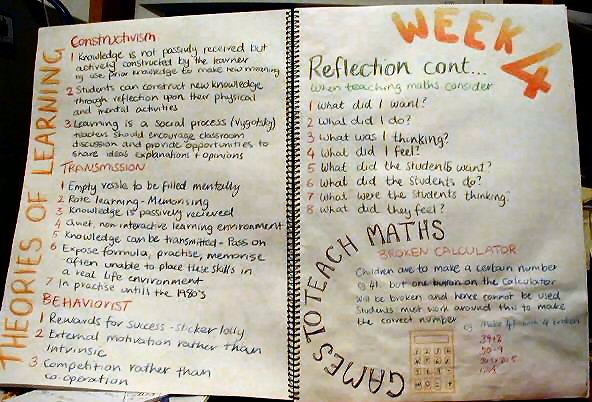 THEORIES OF LEARNING
Constructivism
1 Knowledge is not passivly received but
actively constructed by the learner
eg use prior knowledge to make new meaning
2 Students can construct new knowledge
through reflection upon their physical
and mental activities
3 Learning is a social process (Vygotsky)
teachers should encourage classroom
discussion and provide opportunities to
share ideas explanations + opinions
TRANSMISSION
1 Empty vessle to be filled mentally
2 Rote learning - Memorising
3 Knowledge is passively recieved
4 Quiet, non interactive learning environment
5 Knowledge can be transmitted - Pass on
6 Expose formula, practise, memorise
- often unable to place these skills in
a real life environment
7 In practise until the 1980's
BEHAVIORIST
1 Rewards for success - sticker lolly
2 External motivation rather than
intrinsic
3. Competition rather than
co-operation
WEEK 4
Reflection cont...
When teaching maths consider
1 What did I want?
2 What did I do?
3 What was I thinking?
4 What did I feel?
5 What did the students want?
6 What did the students do?
7 What were the students thinking?
8 What did they feel?
GAMES TO TEACH MATHS
BROKEN CALCULATOR
Children are to make a certain number
eg 41. but one button on the calculator
will be broken and hence cannot be used
Students must work around this to make
the correct number
eg Make 41 with 4 broken
39+2
50-9